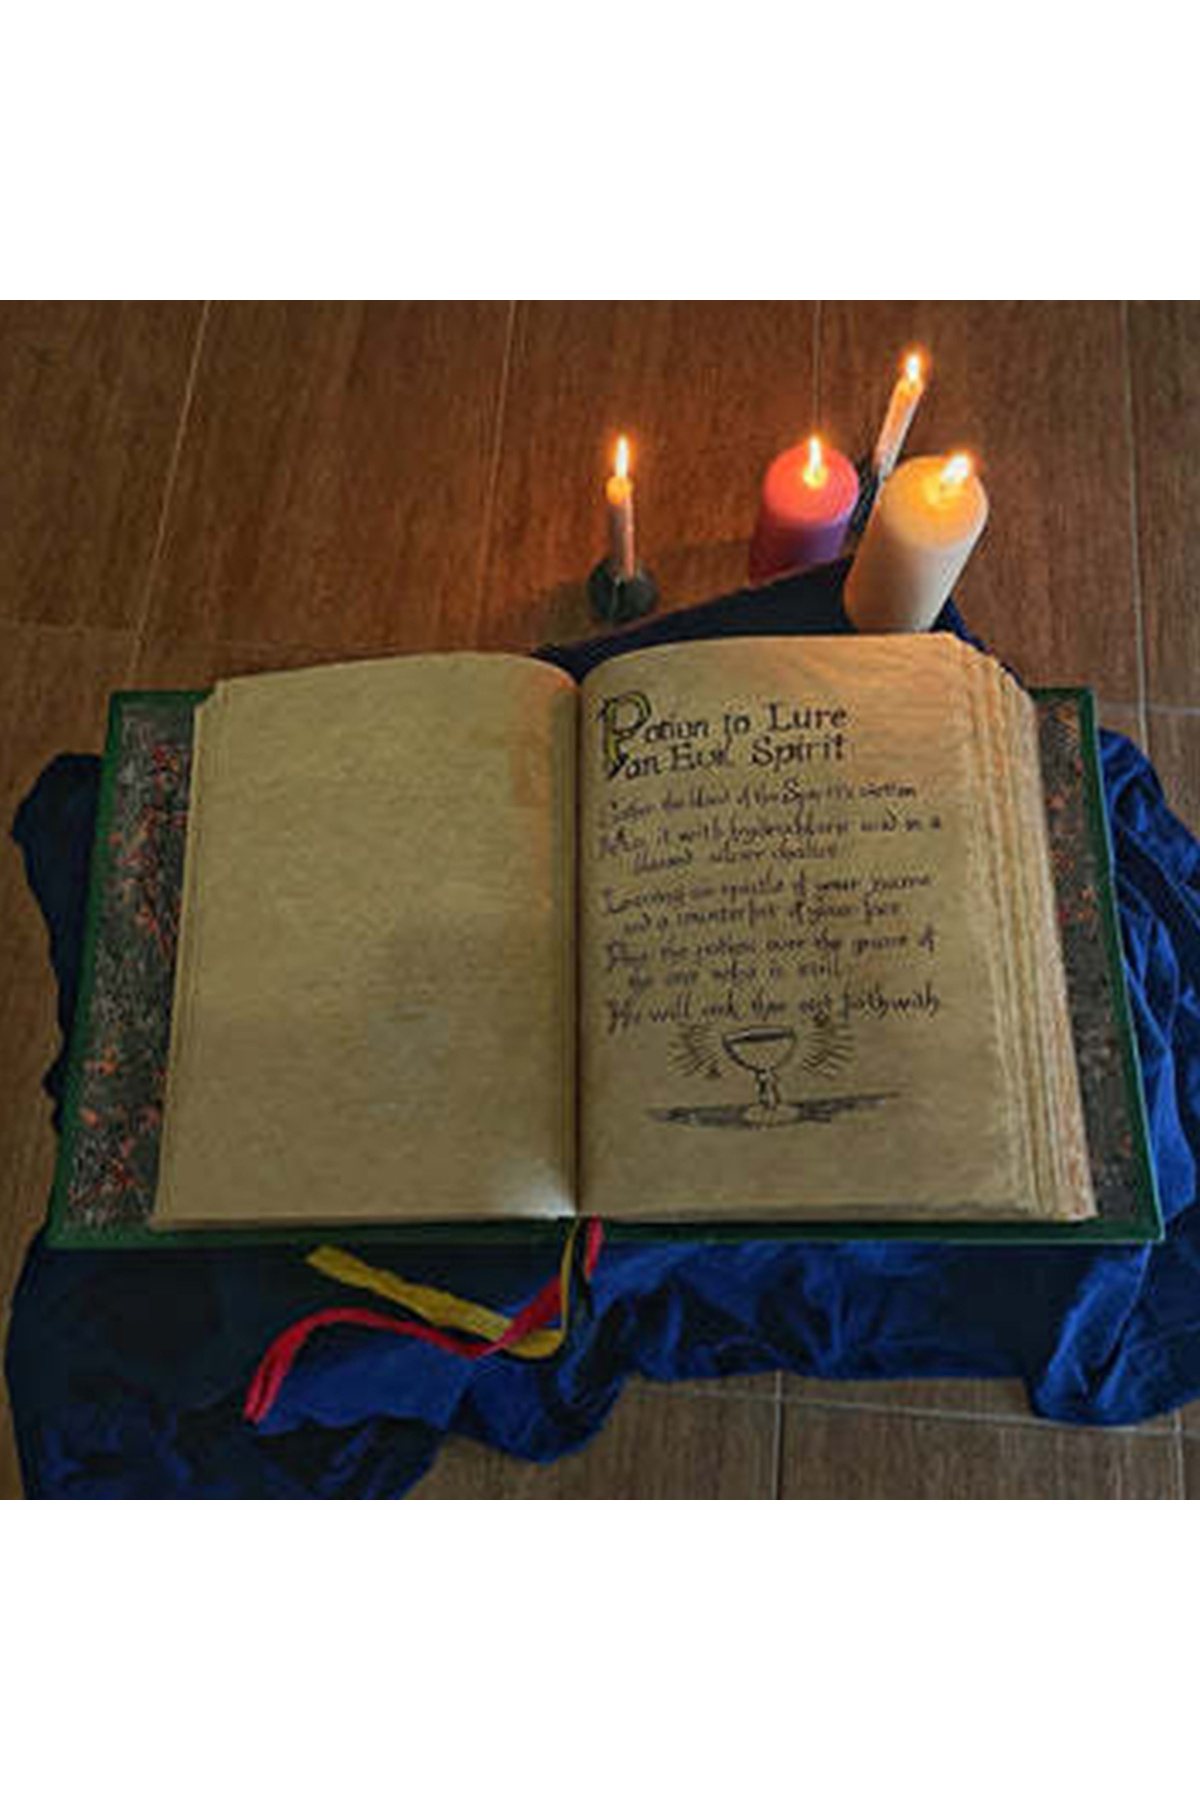 Potion to Lure
an Evil Spirit
the blood of the Spirit's victim
Mix it with hydrochloric acid in a
blessed silver chalice
Leaving an epistle of your name
and a counterfeit of your face
the potion over the grave of
the one who is evil
He will seek thee out forthwith